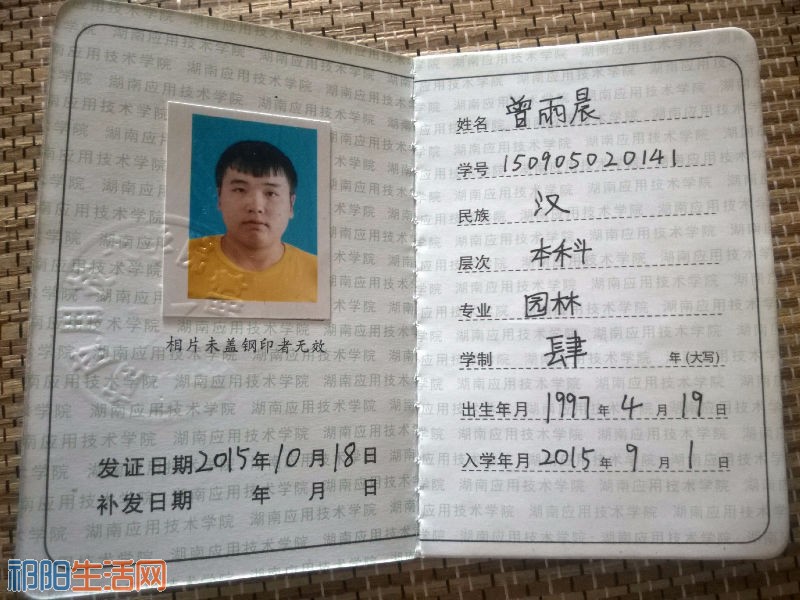 相片未盖钢印者无效
发证日期2015年10月18日
补发日期 年 月 日
姓名 曾雨晨
学号 150905020141
民族 汉
层次 本科
专业 园林
学制 肆 年(大写)
出生年月 1997年4月19日
入学年月 2015年9月1日
湖南应用技术学院
祁阳生活网